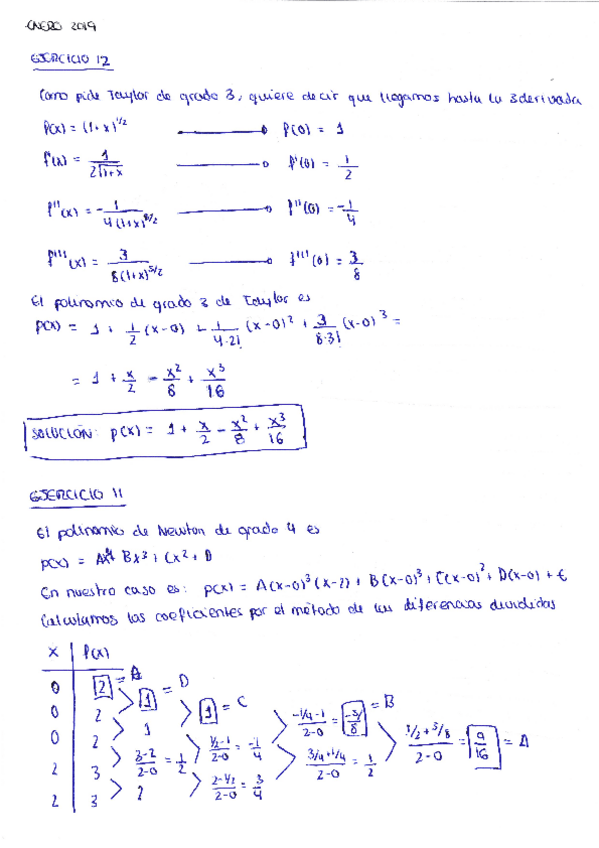 ENERO 2019
EJERCICIO 12
Como pide Taylor de grado 3, quiere decir que llegamos hasta la 3 derivada
f(x) = (1+x)^1/2 f(0) = 1
f'(x) = 1/(2√(1+x)) f'(0) = 1/2
f''(x) = -1/(4(1+x)^3/2) f''(0) = -1/4
f'''(x) = 3/(8(1+x)^5/2) f'''(0) = 3/8
El polinomio de grado 3 de Taylor es
p(x) = 1 + 1/2 (x-0) - 1/(4·2!) (x-0)^2 + 3/(8·3!) (x-0)^3 =
= 1 + x/2 - x^2/8 + x^3/16
SOLUCIÓN: p(x) = 1 + x/2 - x^2/8 + x^3/16
EJERCICIO 11
El polinomio de Newton de grado 4 es
p(x) = Ax^4 + Bx^3 + Cx^2 + D
En nuestro caso es: p(x) = A(x-0)^3(x-2) + B(x-0)^3 + C(x-0)^2 + D(x-0) + E
Calculamos los coeficientes por el método de las diferencias divididas
x f(x)
0 2 = E
1 = D
0 2 1 = C
1 (-1/4-1)/(2-0) = -5/8 = B
0 2 (1/2-1)/(2-0) = -1/4 (1/2+5/8)/(2-0) = 9/16 = A
(3-2)/(2-0) = 1/2 (3/4+1/4)/(2-0) = 1/2
2 3 (2-1/2)/(2-0) = 3/4
2
2 3